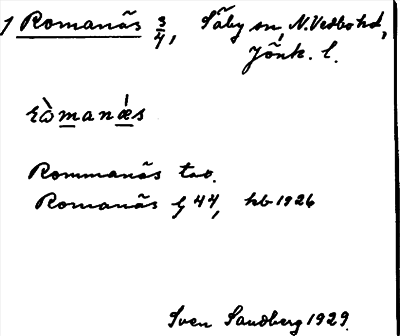 1 Romanäs 3/4, Säby sn, N. Vedbo hd,
Jönk. l.
ròmanǽs
Rommanäs tao.
Romanäs G 44, hb 1926
Sven Sandberg 1929.